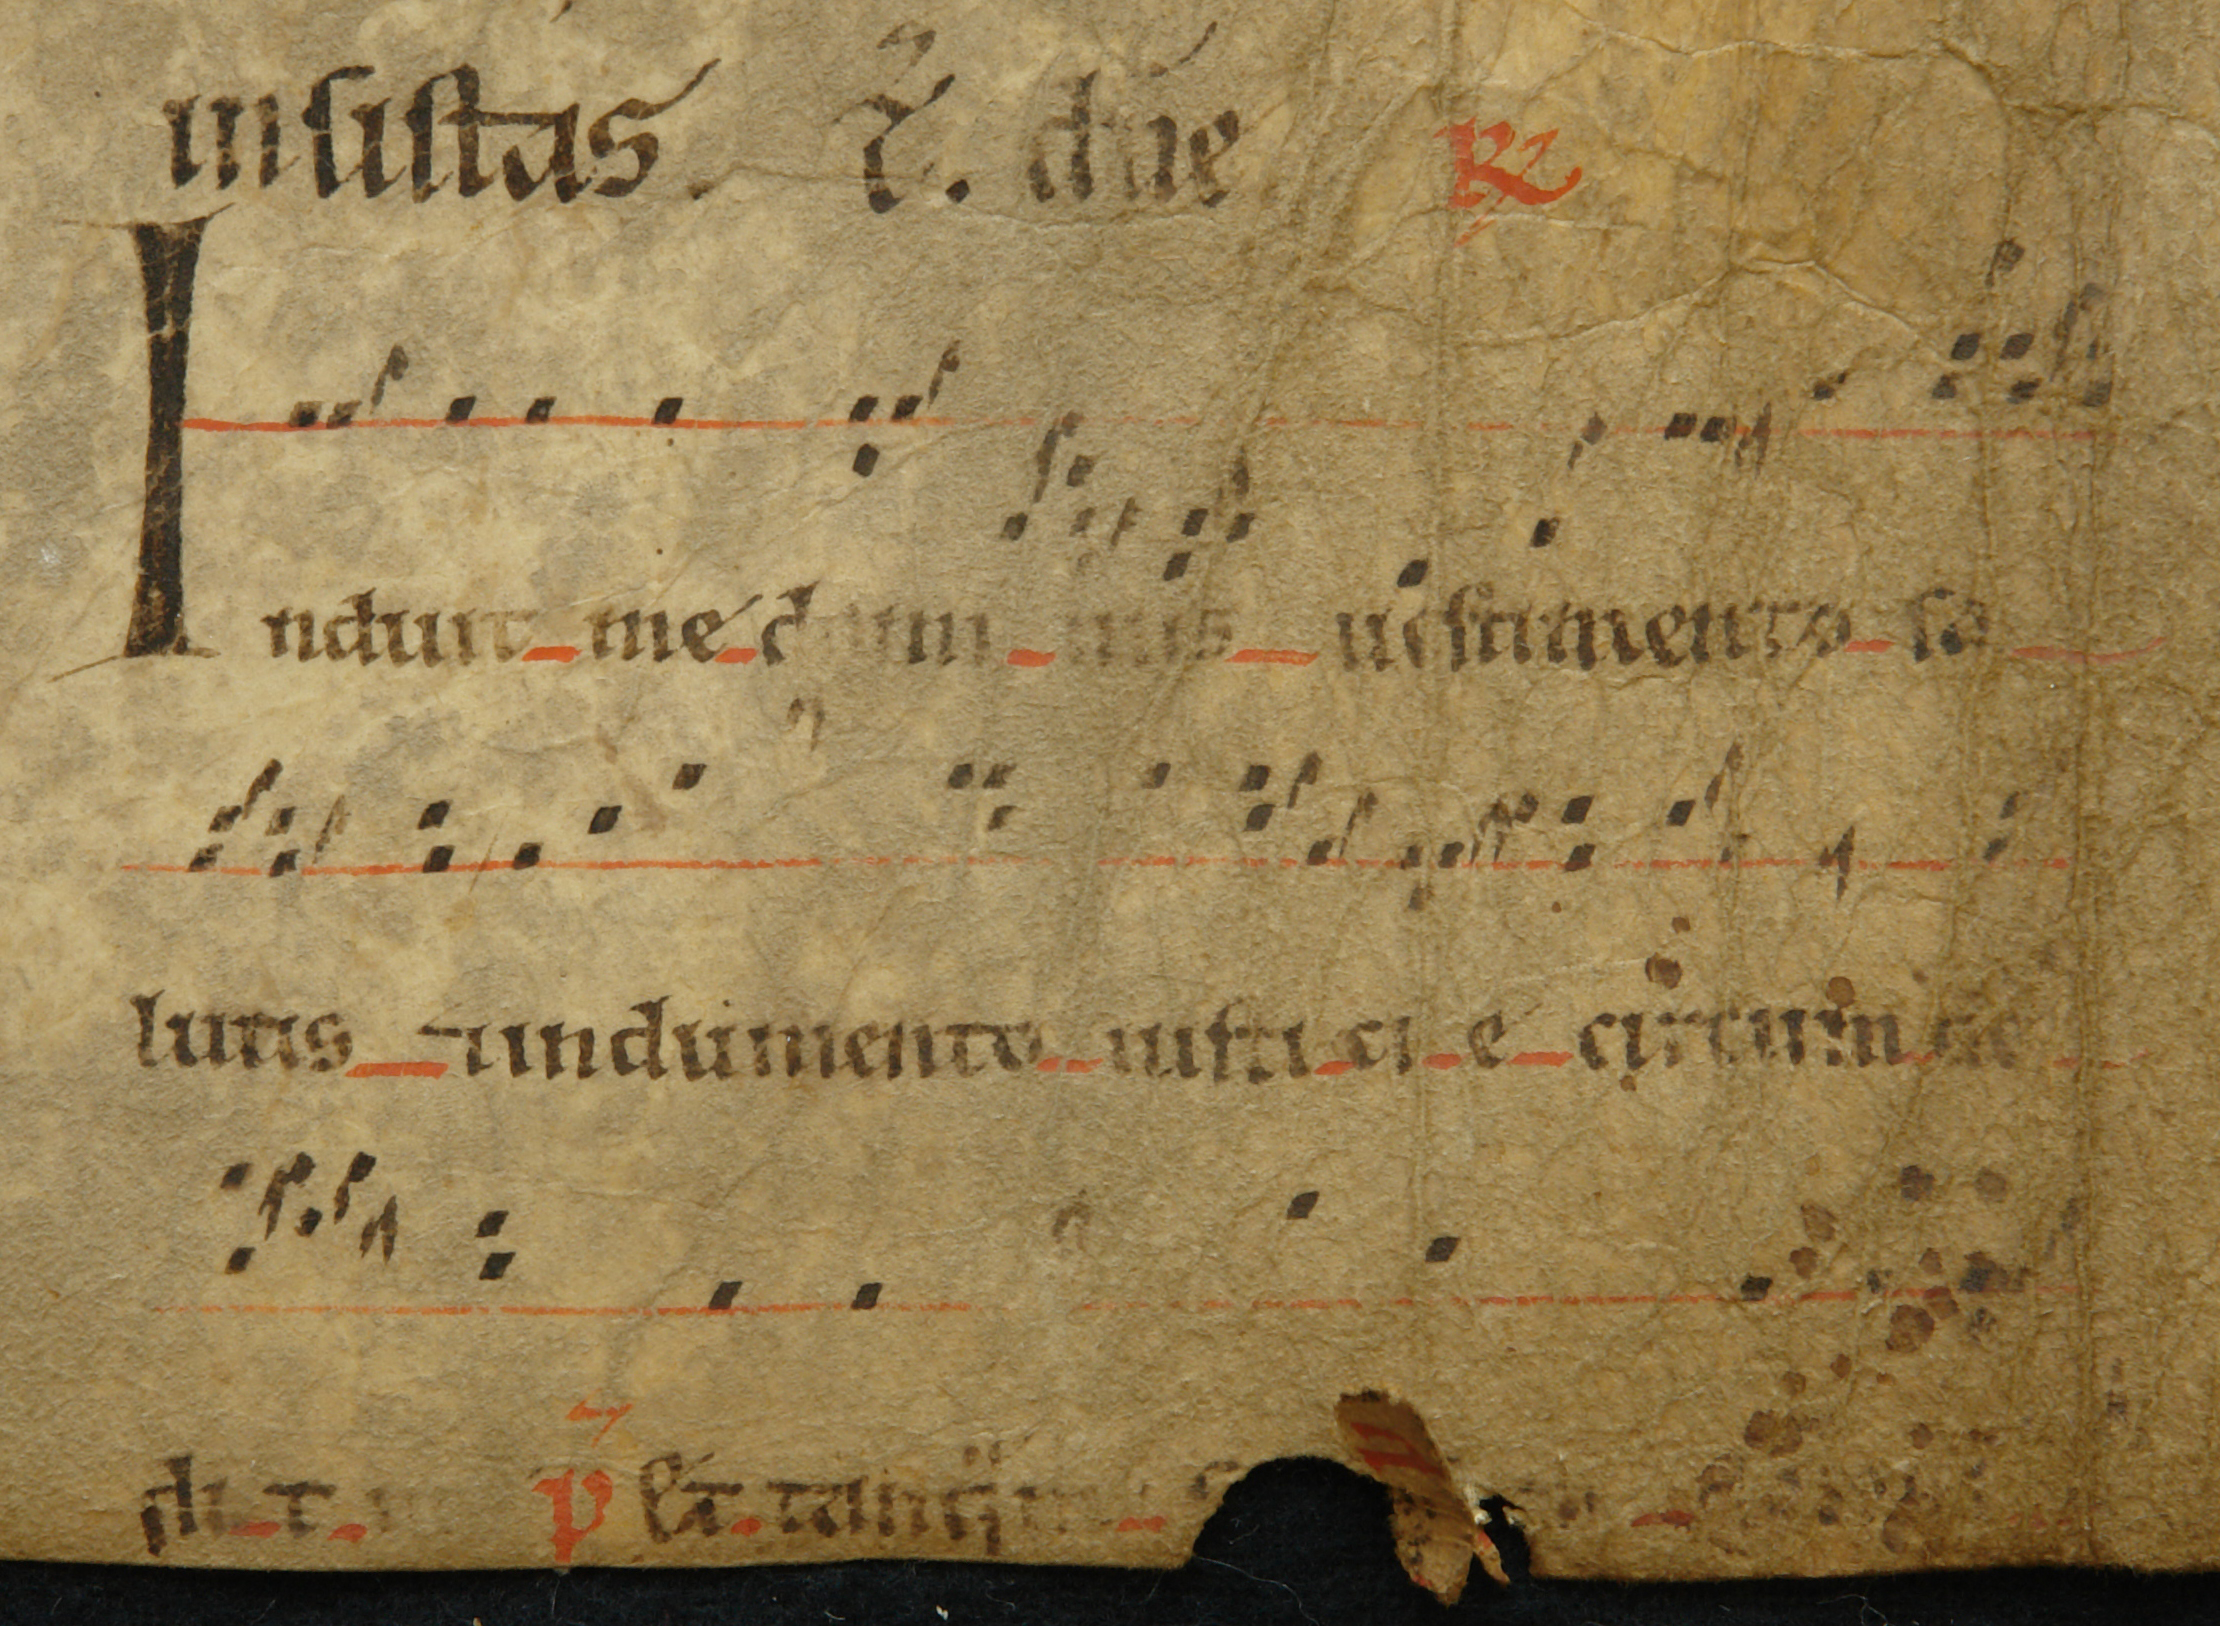 insistas. r̃. dñe ℟
Induit me dnus uestimento sa
lutis ⁊ indumento iusticie circumde
dit me p̃ Et tanq̈